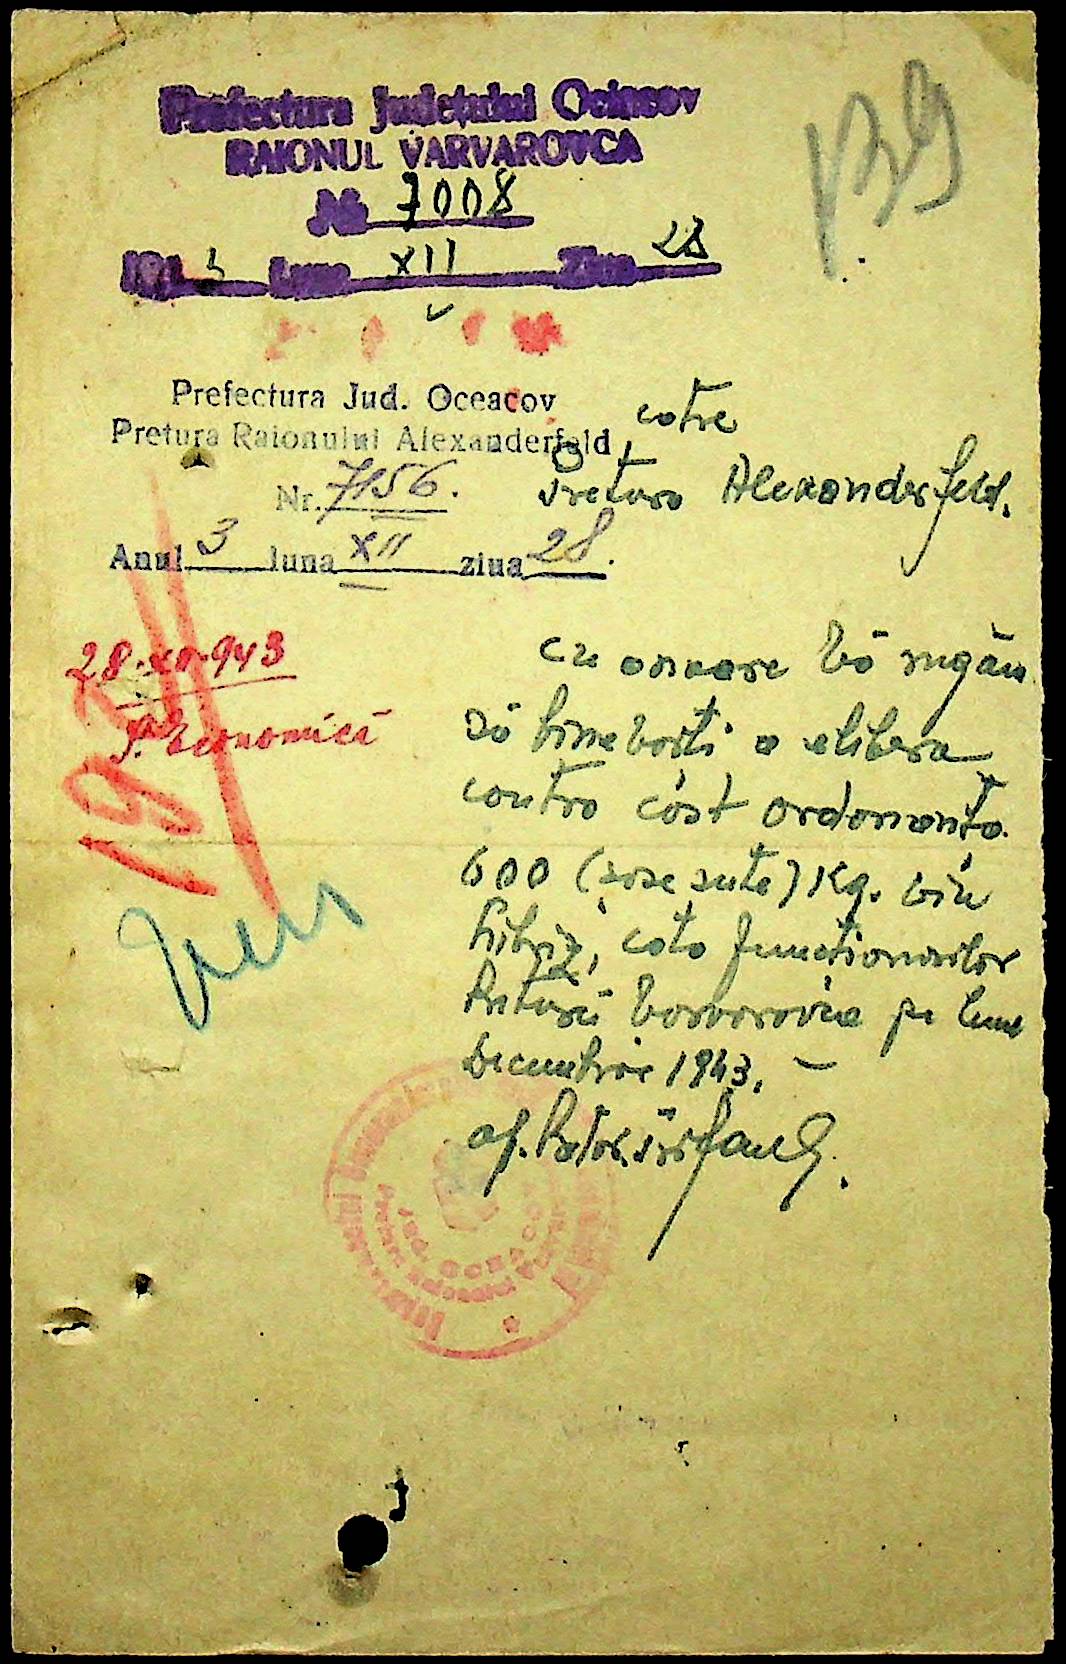 Prefectura Județului Ociacov
RAIONUL VARVAROVCA
№ 7008
194 3 Luna XII Ziua 28
139
Prefectura Jud. Oceacov
Pretura Raionului Alexanderfeld
Nr. 7156.
Anul 3 luna XII ziua 28.
cotre
Pretura Alexanderfeld.
28.XII.943
S. Economică
Cu onoare Vă rugăm
să binevoiți a elibera
contra cost ordonanța
600 (șase sute) Kg. vin
hibrid, cota funcționarilor
Preturii Varvarovca pe luna
Decembrie 1943. –
JUD. OCEACOV